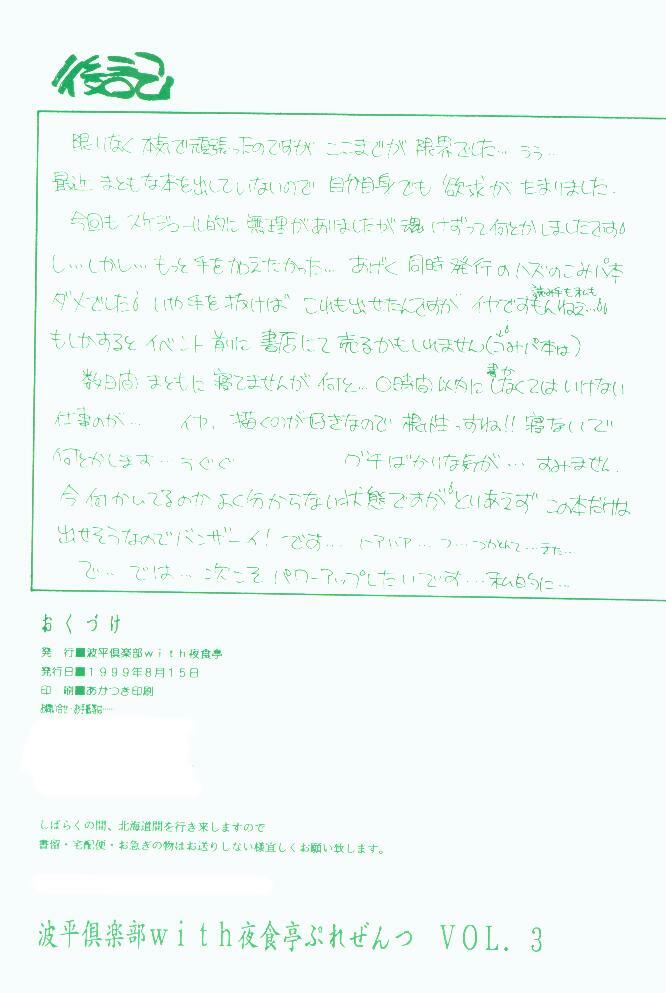 後記
限りなく 本気で頑張ったのですが ここまでが 限界でした… うぅ…
最近 まともな本を出していないので 自分自身でも 欲求が たまりました.
今回も スケジュール的に 無理がありましたが 魂 けずって何とかしましたです
し…しかし… もっと手をかえたかった… あげく 同時発行の ハズのこみパ本
読み手も私も
ダメでした いや手を抜けば これも出せたんですが イヤですもんねえ…
もしかすると イベント前に 書店にて 売るかもしれません(こみパ本は)
書か
数日間 まともに 寝てませんが 何と… 〇時間以内に しなくては いけない
仕事のが… イヤ, 描くのが好きなので 根性っすね!! 寝ないで
何とかします… うぐぐ グチばかりな気が… すみません.
今 何かいてるのか よく分からない状態ですが とりあえず この本だけは
出せそうなので バンザーイ! です…
で… では… 次こそ パワーアップしたいです… 私的に…
おくづけ
発 行■波平倶楽部with夜食亭
発行日■1999年8月15日
印 刷■あかつき印刷
しばらくの間、北海道間を行き来しますので
書留・宅配便・お急ぎの物はお送りしない様宜しくお願い致します。
波平倶楽部with夜食亭ぷれぜんつ VOL. 3